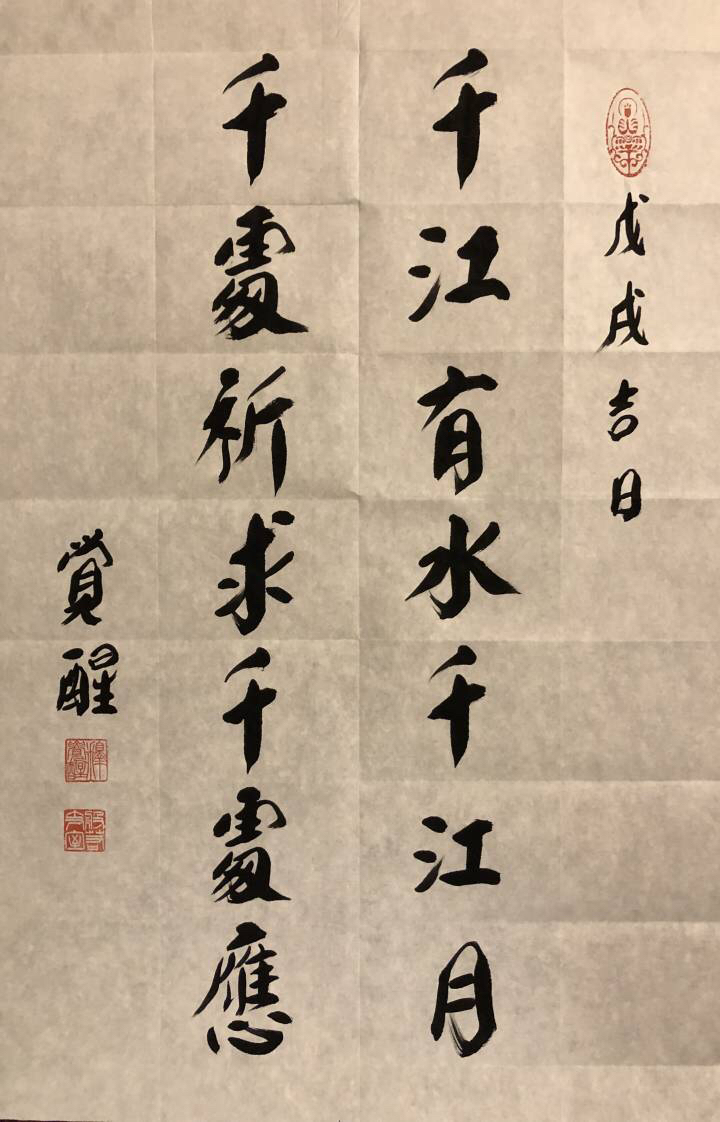 戊戌吉日
千江有水千江月
千處祈求千處應
覺醒